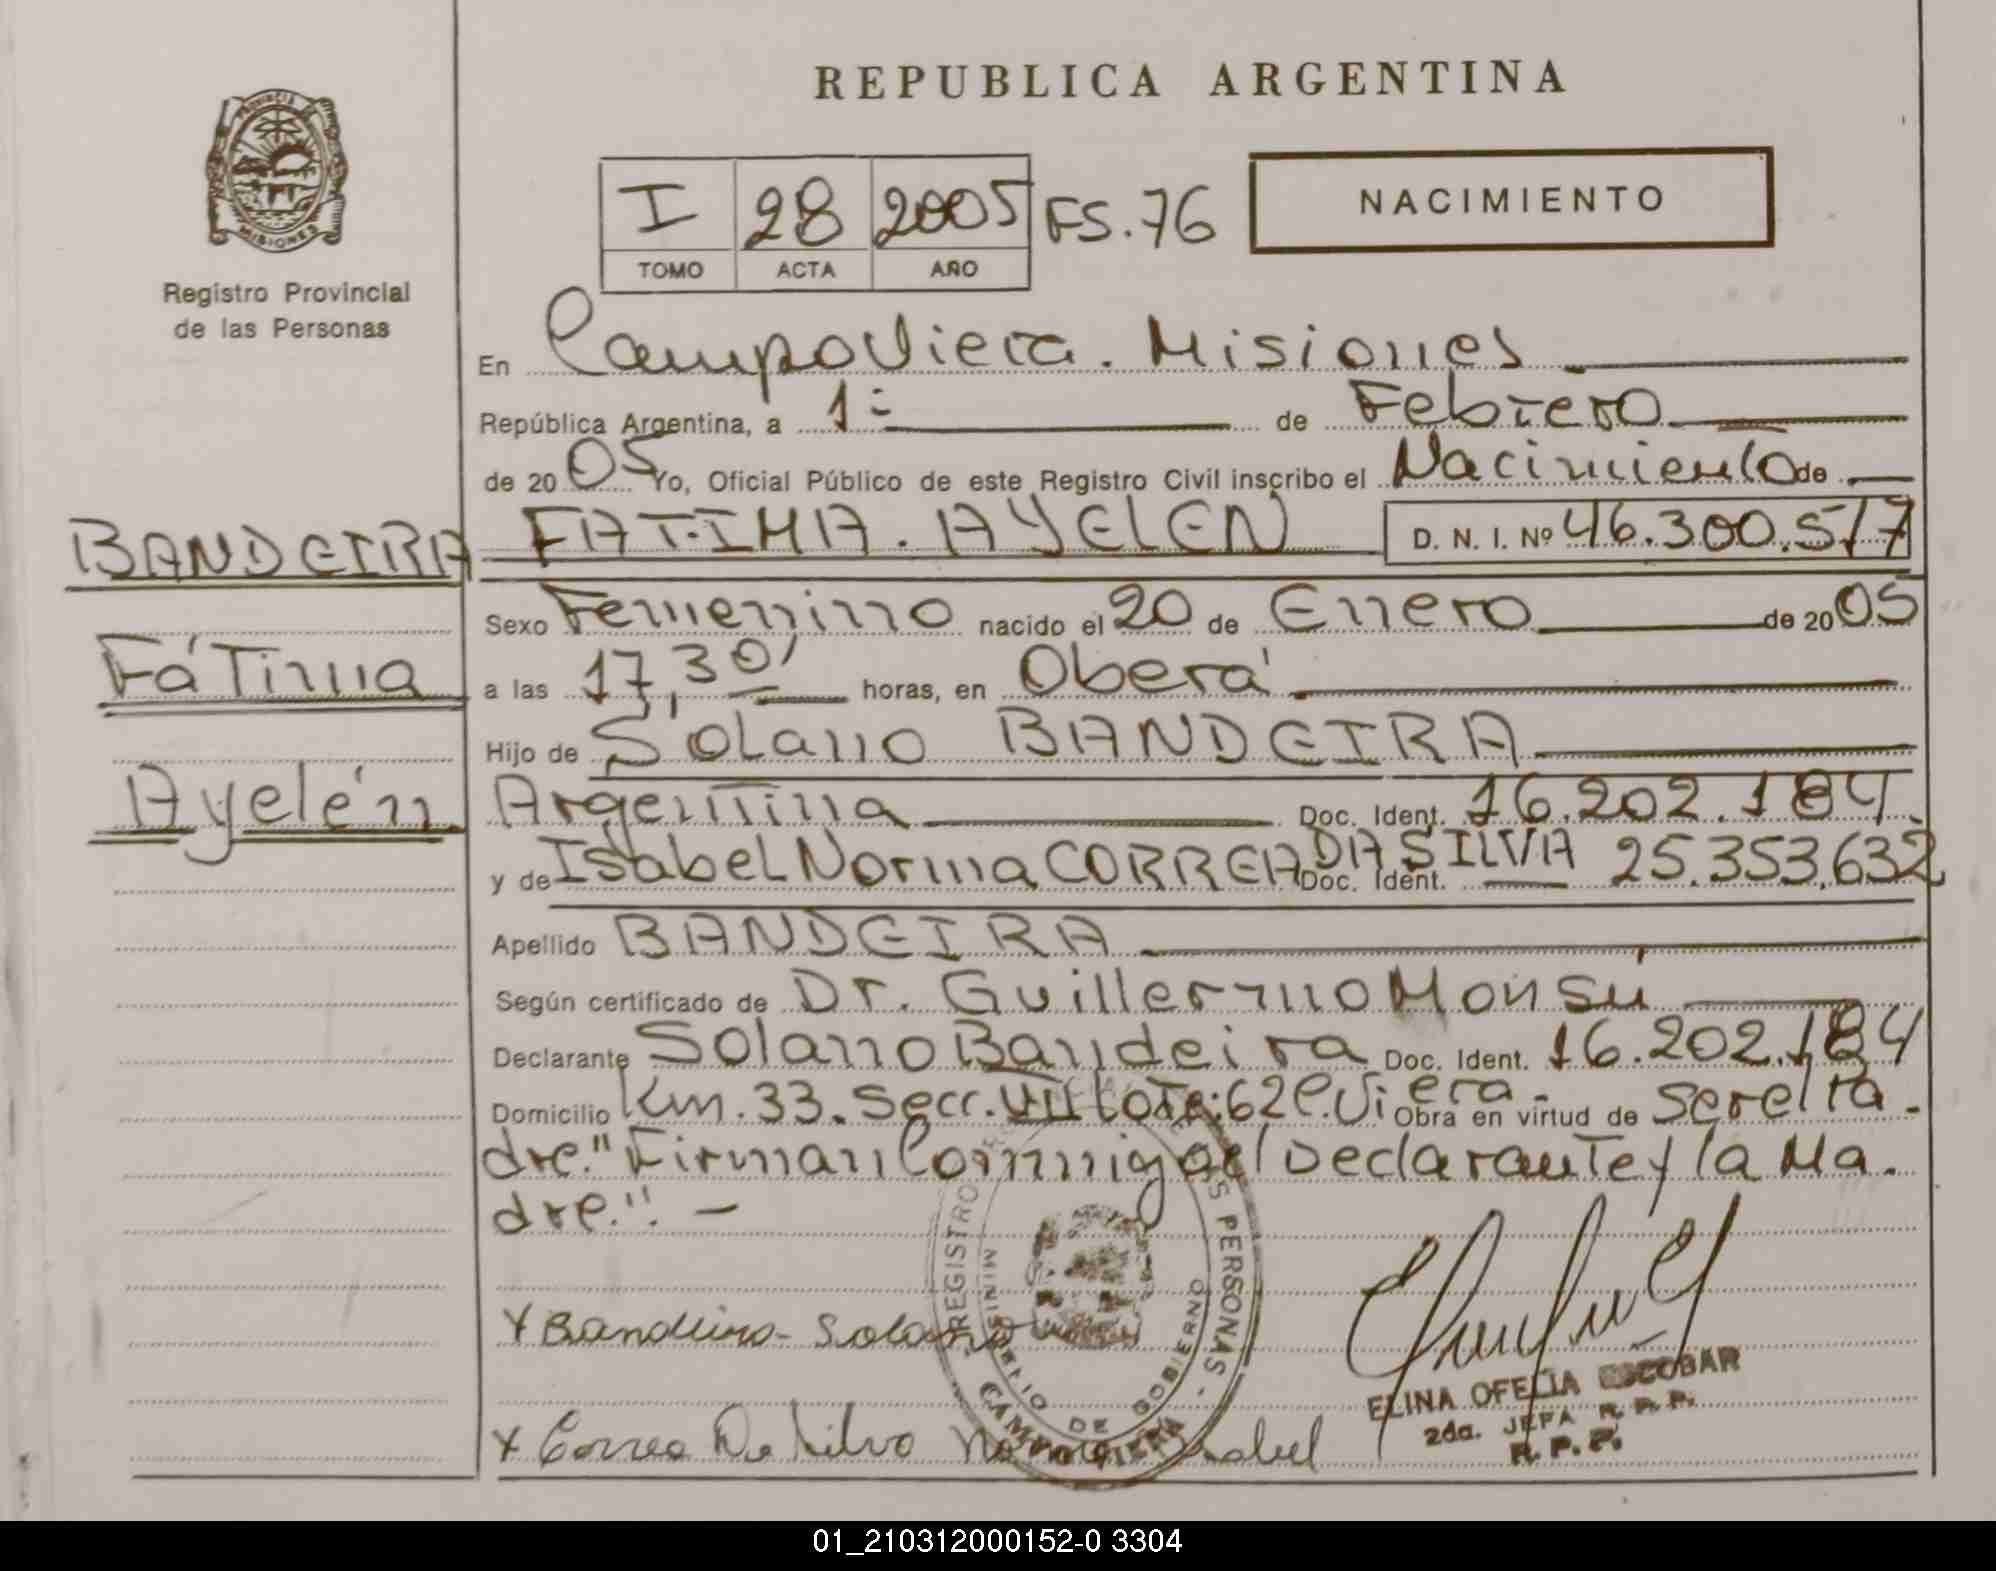 REPUBLICA ARGENTINA
PROVINCIA DE MISIONES
Registro Provincial
de las Personas
I 28 2005 FS.76
TOMO ACTA AÑO
NACIMIENTO
En Campo Viera. Misiones
República Argentina, a 1º de Febrero
de 2005 Yo, Oficial Público de este Registro Civil inscribo el Nacimiento de
BANDEIRA FATIMA. AYELEN D. N. I. Nº 46.300.517
Sexo Femenino nacido el 20 de Enero de 2005
Fátima a las 17,30' horas, en Oberá
Hijo de Solano BANDEIRA
Ayelén Argentina Doc. Ident. 16.202.184
y de Isabel Norma CORREA DA SILVA Doc. Ident. 25.353.632
Apellido BANDEIRA
Según certificado de Dr. Guillermo Monsú
Declarante Solano Bandeira Doc. Ident. 16.202.184
Domicilio Km. 33. Secc. VIII Lote: 62 C. Viera. Obra en virtud de ser el Pa-
dre." Firman Conmigo el Declarante y la Ma-
dre.". —
x Bandeira - Solano
x Correa Da Silva Norma Isabel
REGISTRO DE LAS PERSONAS - CAMPO VIERA -
MINISTERIO DE GOBIERNO
ELINA OFELIA ESCOBAR
2da. JEFA R. P. P.
R. P. P.
01_210312000152-0 3304